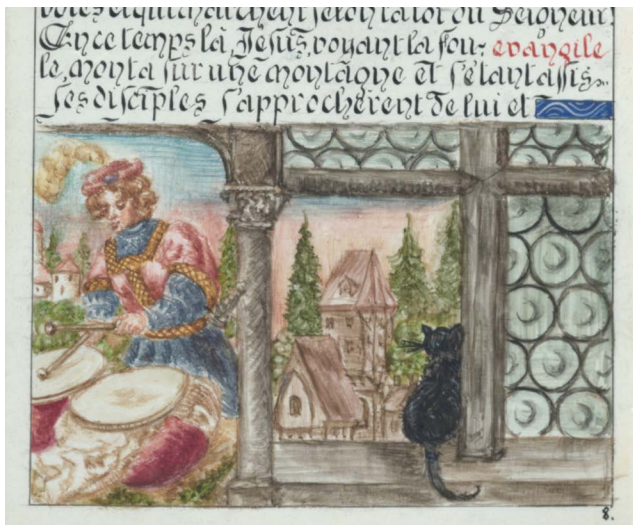 voies et qui marchent selon la loi du Seigneur.
En ce temps là, Jésus, voyant la fou- evangile
le, monta sur une montagne et s'étant assis
ses disciples s'approchèrent de lui et
8.